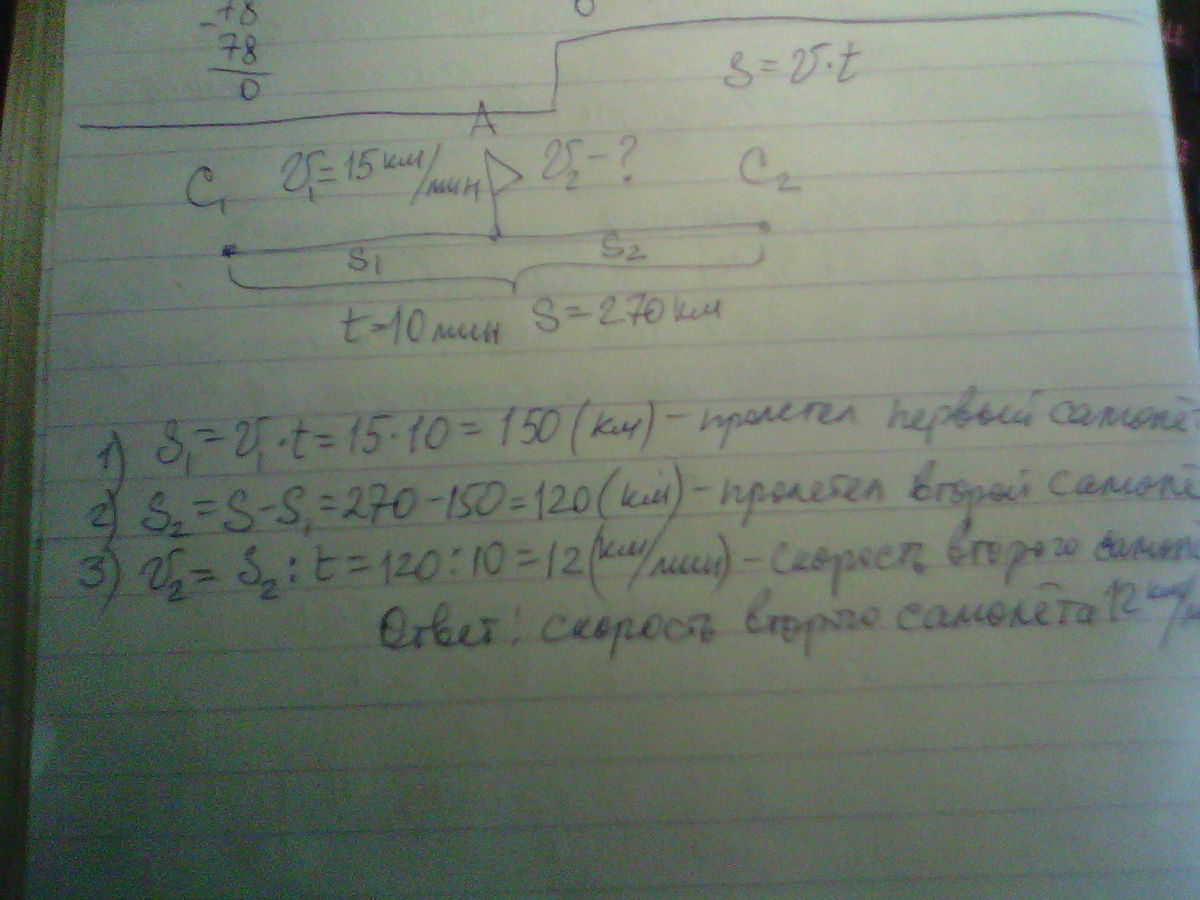 -78
78
0
S = v·t
A
C₁ v₁=15 км/мин v₂-? C₂
S₁ S₂
t=10 мин S=270 км
1) S₁=v₁·t=15·10=150 (км) - пролетел первый самолё
2) S₂=S-S₁=270-150=120 (км) - пролетел второй самолё
3) v₂=S₂:t=120:10=12 (км/мин) - скорость второго самол
Ответ: скорость второго самолёта 12 км/